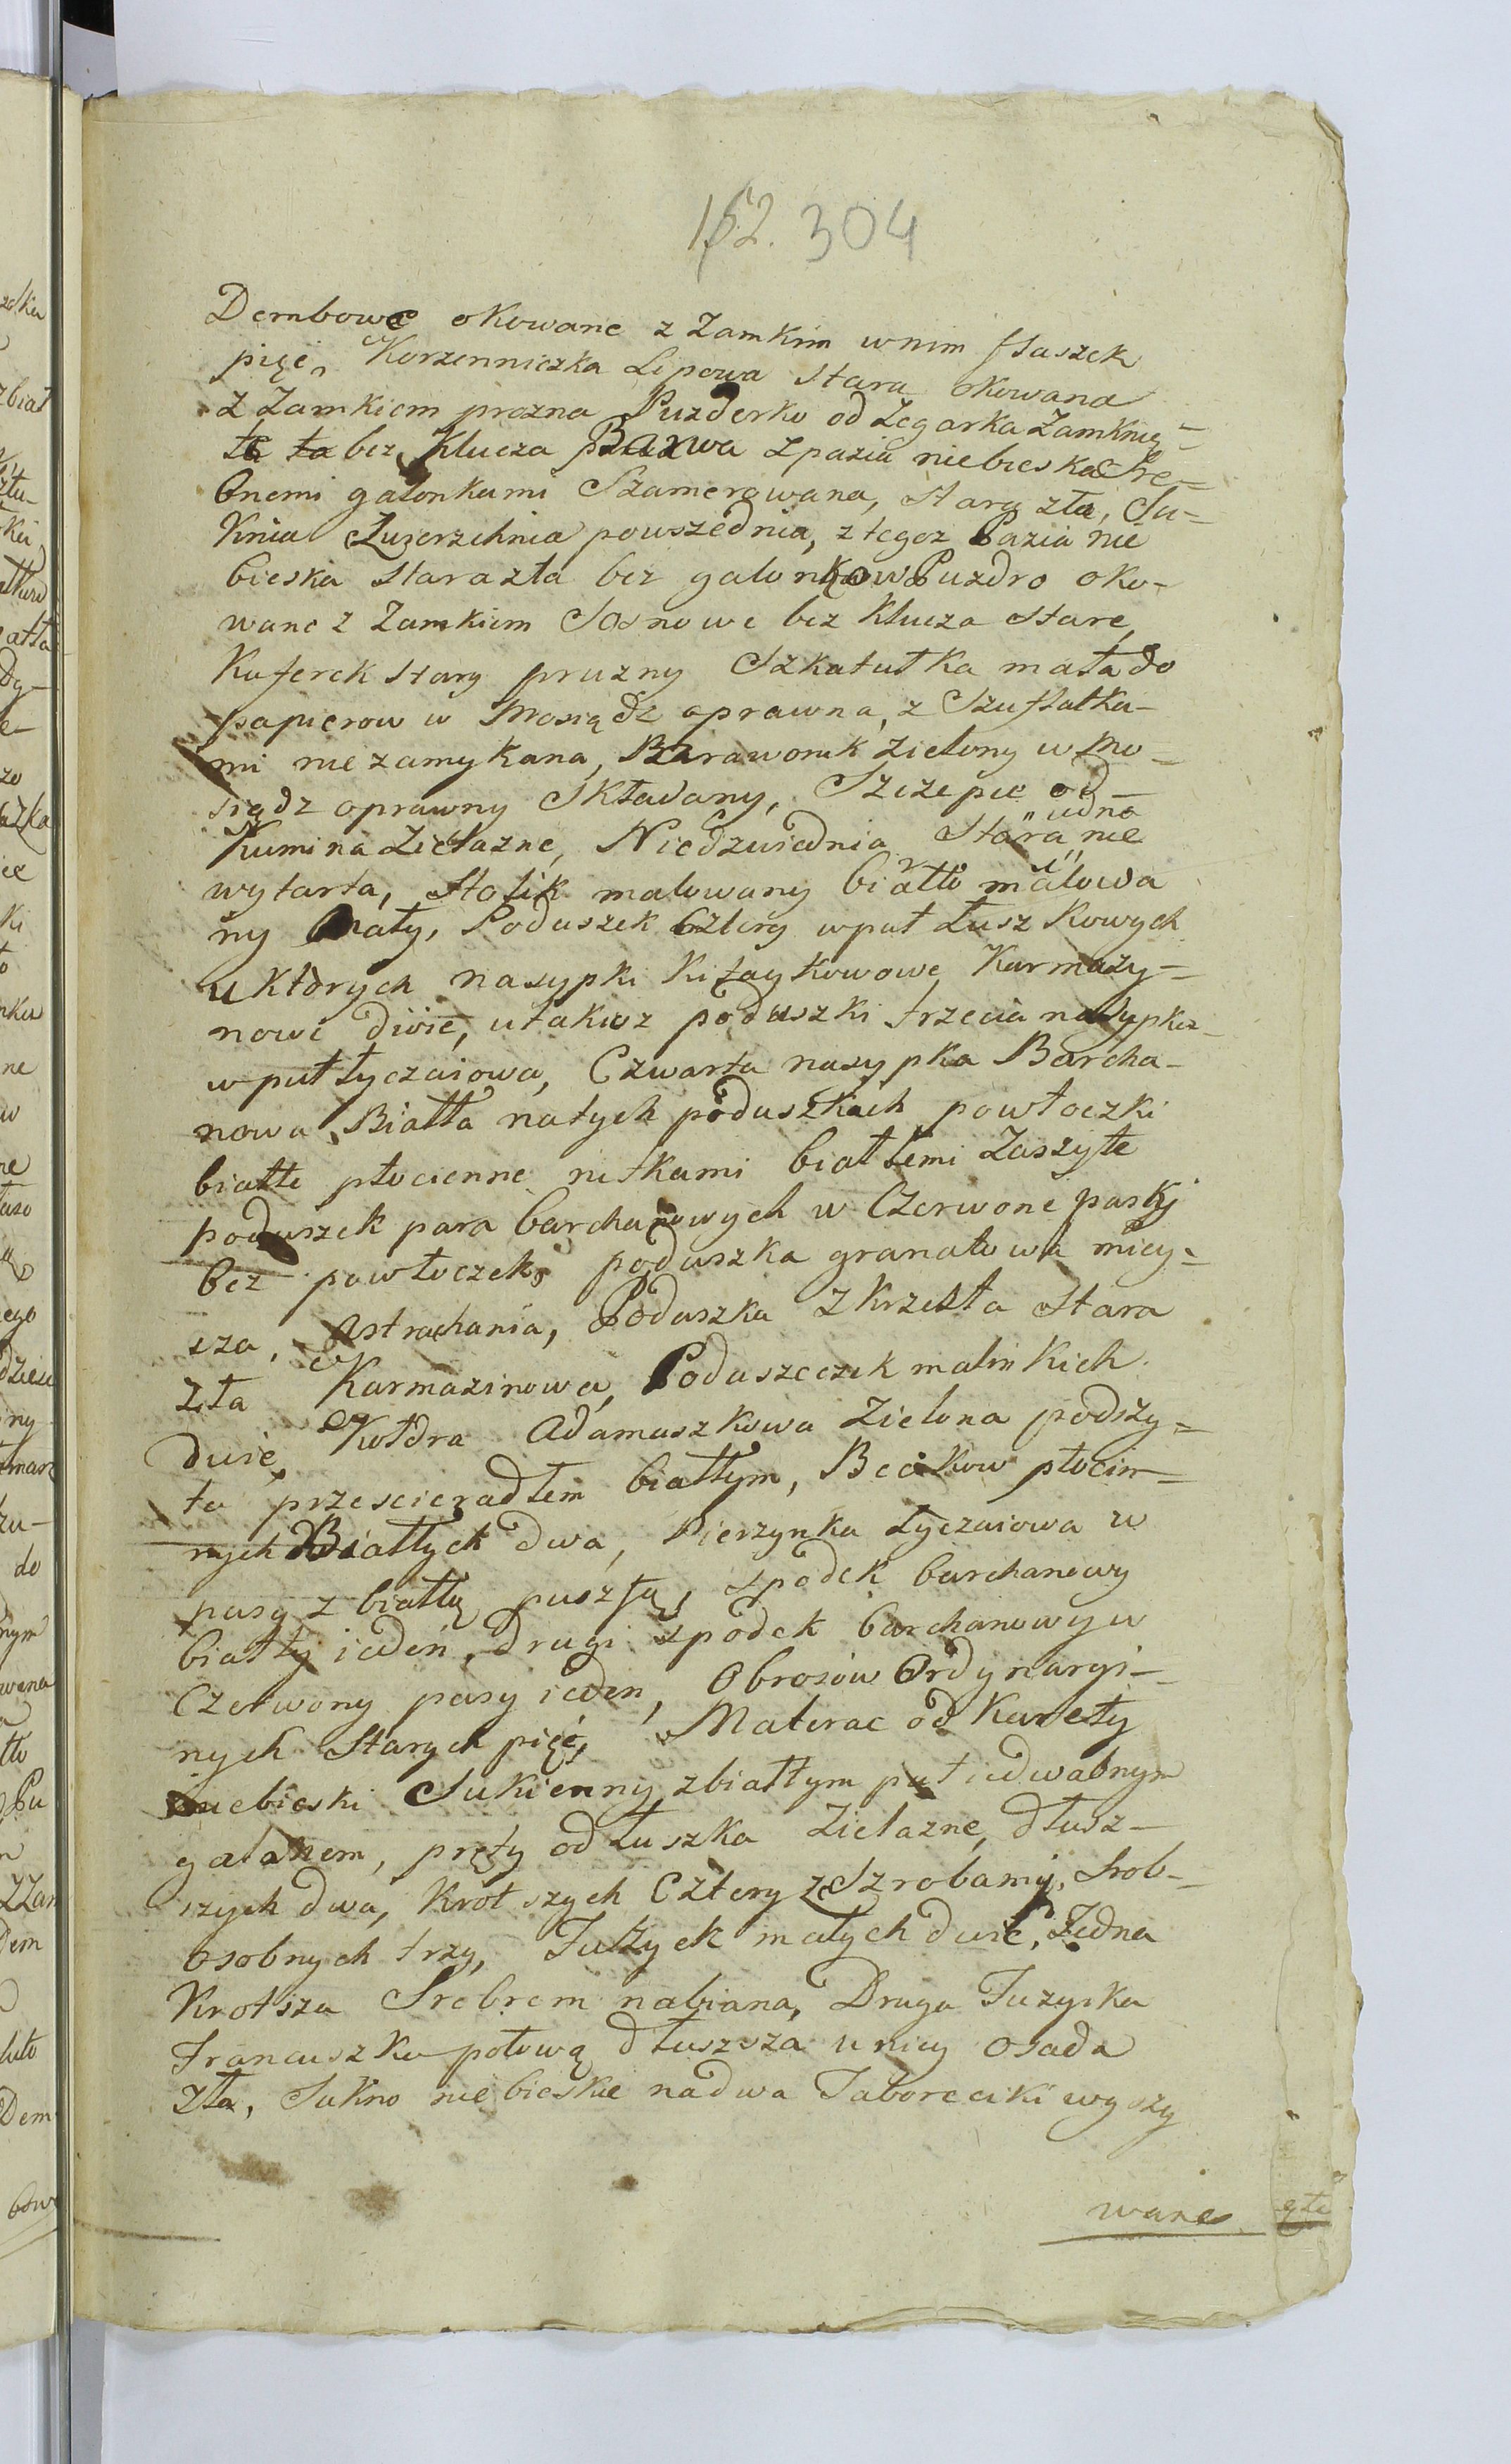 152. 304
Dembowe okowane z Zamkim wnim flaszek
pięć, Korzenniczka Lipowa stara okowana
z Zamkiem prozna Puzderko od Zegarka Zamknię=
te ta bez Klucza Barwa z pazia niebieska Sre=
bnemi galonkami Szamerowana, stara zła, Su=
knia Zwierzchnia powszednia, z tegoz Pazia nie
bieska stara zła bez galonkow Puzdro oko-
wane z Zamkiem Sosnowe bez Klucza stare,
Kuferek stary pruzny Szkatułka mała do
papierow w Mosiądz oprawna, z Szuflatka-
mi nie zamykana, Barawonik zielony w Mo=
siądz oprawny Składany, Szczepce od-
Kumina Zielazne, Niedzwiednia Stara nie
udna
wytarta, Stolik malowany biało malowa
ny Mały, Poduszek Cztery wpuł Łuszkowych
u których nasypki Kitaykowowe Karmazy=
nowe dwie, u takiesz poduszki trzecia nasypka
wpuł łyczaiowa, Czwarta nasypka Barcha-
nowa Białła natych poduszkach powłoczki
białłe płocienne nitkami białłemi Zaszyte
poduszek para barchanowych w Czerwone paski
bez powłoczek, poduszka granatowa miey=
sza, Astrachania, Poduszka z krzesła Stara
Zła Karmazinowa, Poduszeczek malinkich
dwie, Kołdra Adamaszkowa zielona podszy=
ta przescieradłem białłym, Beckow płocin=
nych Białłych dwa, Pierzynka Łyczaiowa w
pasy z białłą puszłą, spodek barchanowy
biały ieden, drugi spodek barchanowy w
Czerwony pasy ieden, Obrosów Ordynaryi-
nych Starych pięć, Materac od Karety
niebieski Sukienny z białłym puł iedwabnym
galonem, pręty od Łuszka Zielazne, dłusz-
szych dwa, Krotszych Cztery z Szrobamy, Srob-
osobnych trzy, Fuzyek małych dwie, Jedna
Krotsza Srebrem nabiana, Druga Fuzyika
Francuszka połową dłuszsza u niey Osada
zła, Sukno niebieskie nadwa Taboreciki wyszy
wane